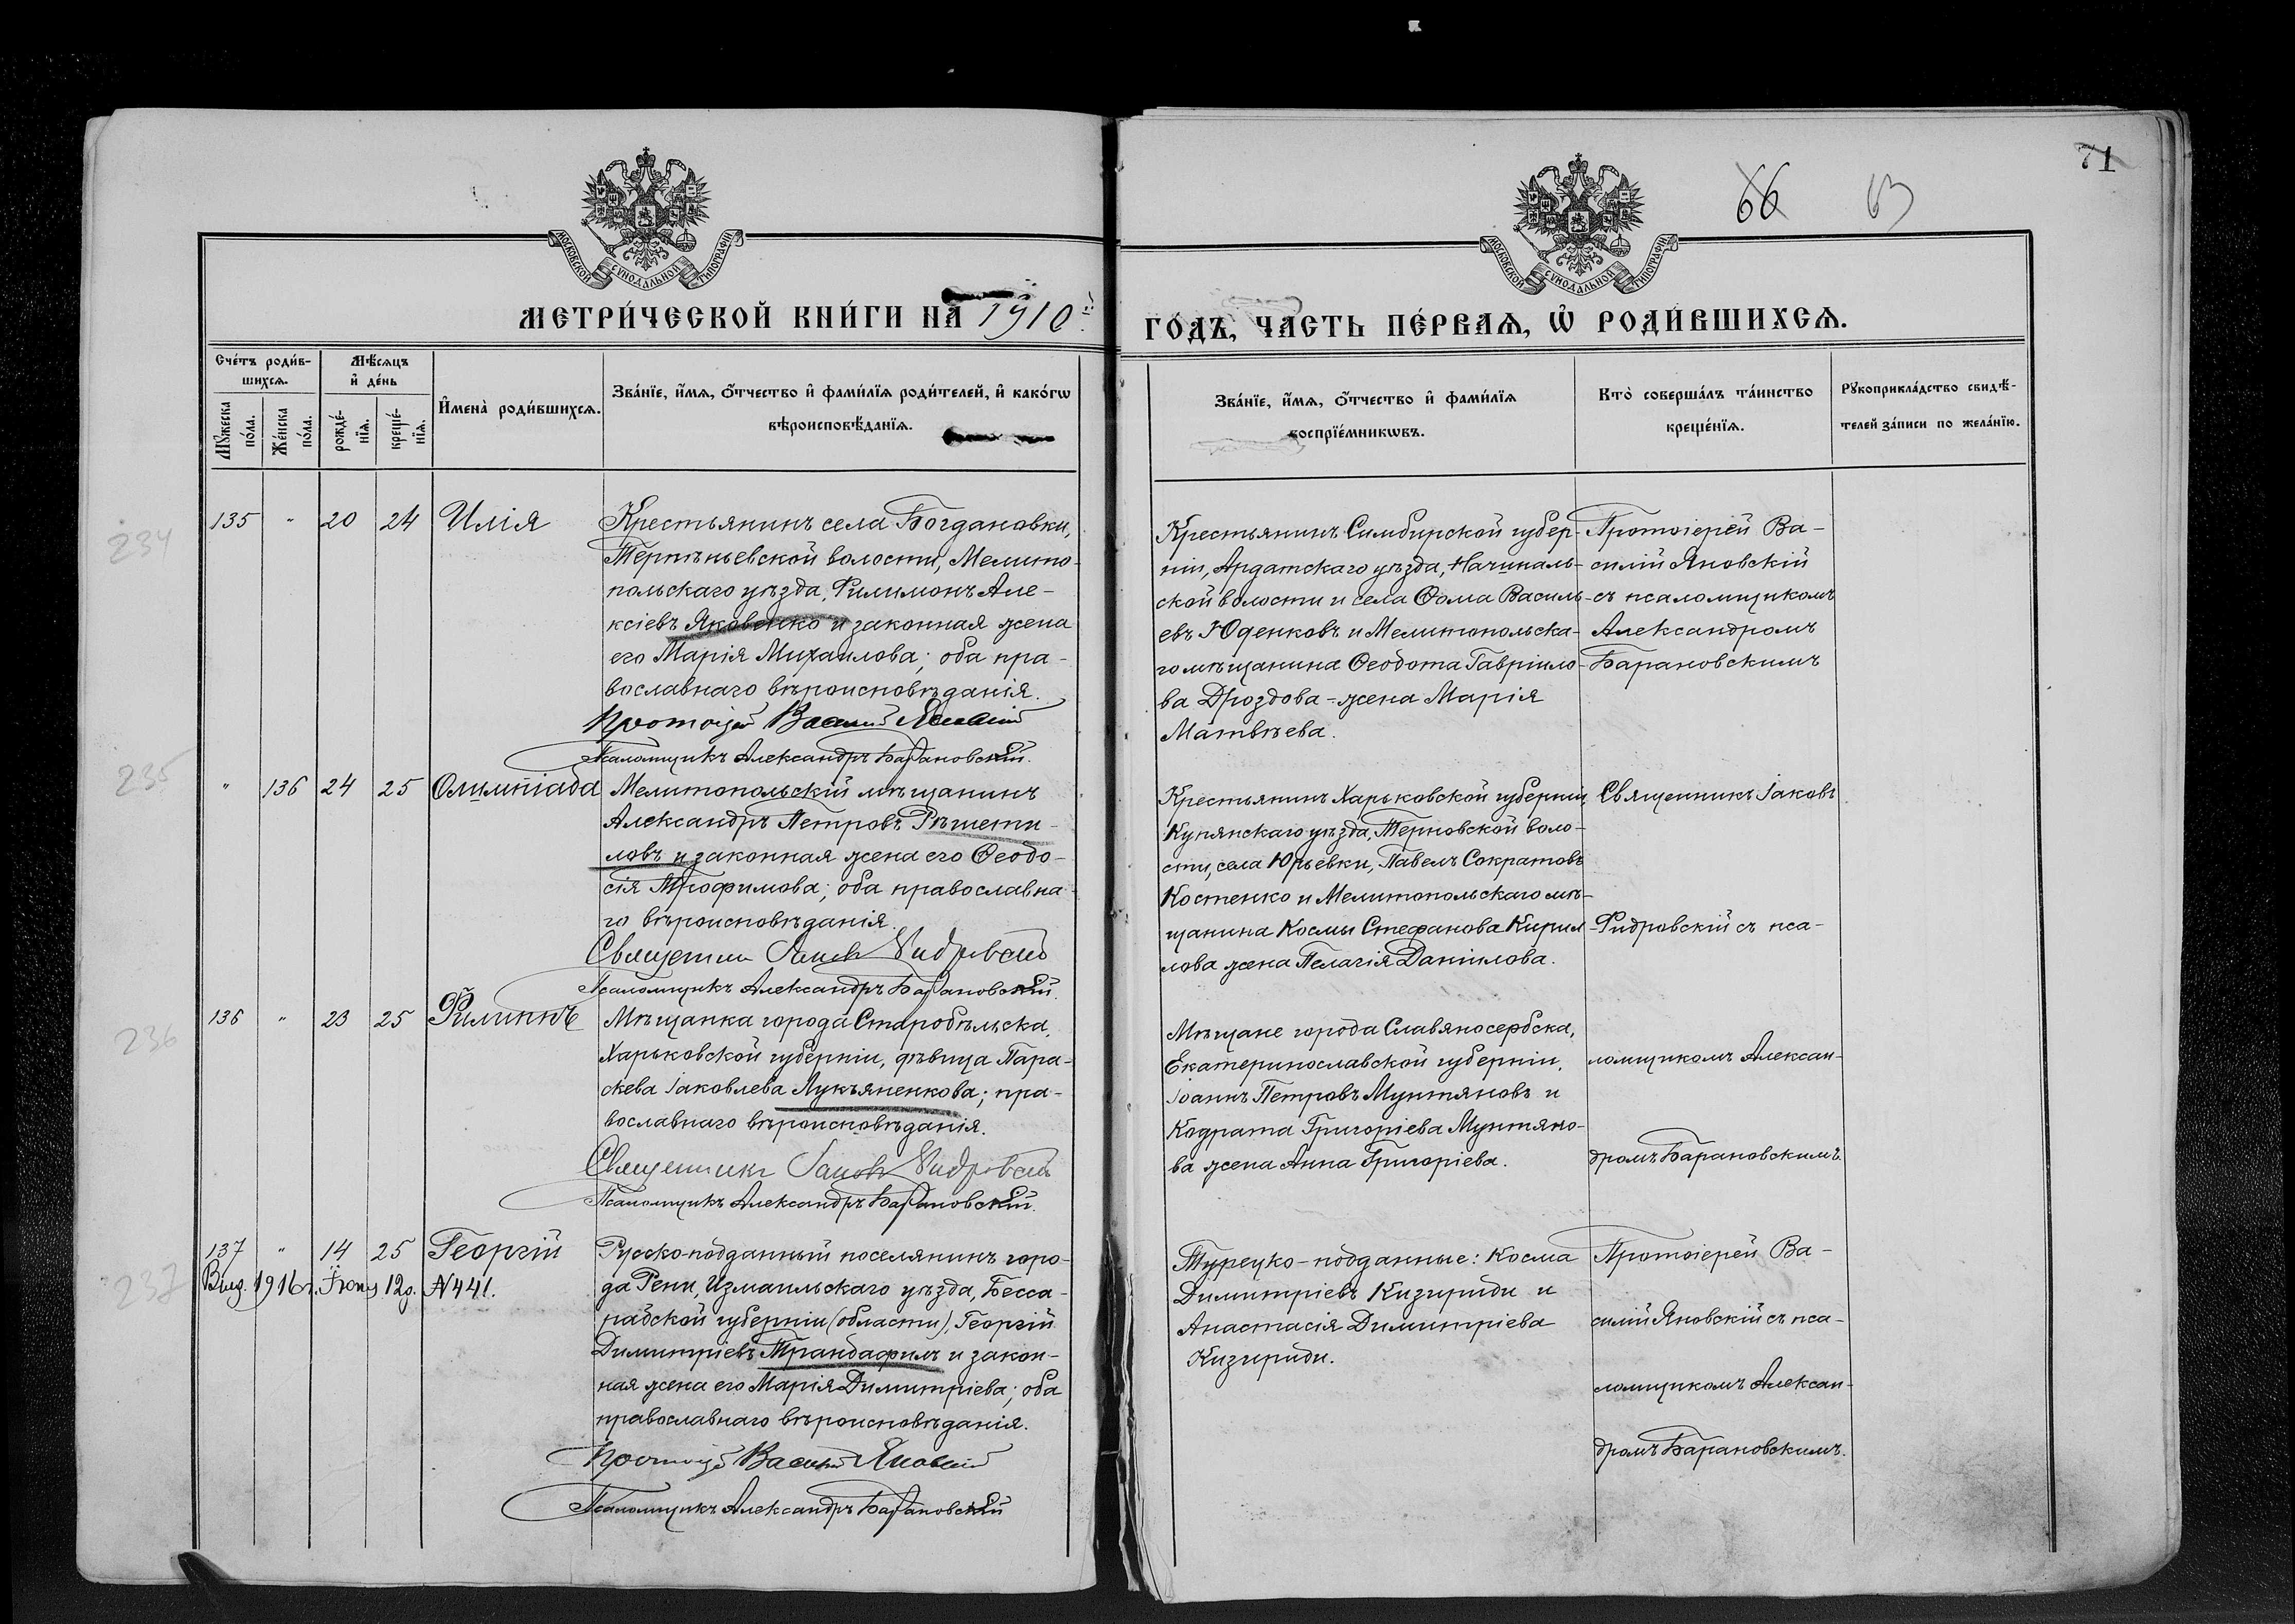 71
66
63
МОСКОВСКОЙ СУНОДАЛЬНОЙ ТИПОГРАФІИ
МОСКОВСКОЙ СУНОДАЛЬНОЙ ТИПОГРАФІИ
МЕТРИ́ЧЕСКОЙ КНИ́ГИ НА 1910й
ГО́ДЪ, ЧАСТЬ ПЕ́РВАѦ, Ѡ РОДИ́ВШИХСѦ.
Сче́тъ роди́в-
шихсѧ.
Мꙋ́жеска
по́ла.
Же́нска
по́ла.
Мѣ́сѧцъ
и҆ де́нь
рожде́-
нїѧ.
креще́-
нїѧ.
И҆мена̀ роди́вшихсѧ.
Зва́нїе, и҆́мѧ, ѻ҆́тчество и҆ фами́лїѧ роди́телей, и҆ како́гѡ
вѣроисповѣ́данїѧ.
Зва́нїе, и҆́мѧ, ѻ҆́тчество и҆ фами́лїѧ
воспрїе́мникѡвъ.
Кто̀ соверша́лъ та́инство
креще́нїѧ.
Рꙋкоприкла́дство свидѣ́-
телей за́писи по жела́нїю.
234
135 " 20 24 Илія
Крестьянинъ села Богдановки,
Терпѣньевской волости, Мелито-
польскаго уѣзда, Филимонъ Але-
ксіевъ Яковенко и законная жена
его Марія Михаилова; оба пра-
вославнаго вѣроисповѣданія.
Протоіерей Василій Яновскій
Псаломщикъ Александръ Барановскій.
Крестьянинъ Симбирской губер-
ніи, Ардатскаго уѣзда, Начиналь-
ской волости и села Ѳома Василь-
евъ Юденковъ и Мелитопольска-
го мѣщанина Ѳеодота Гавріило-
ва Дроздова - жена Марія
Матвѣева.
Протоіерей Ва-
силій Яновскій
съ псаломщикомъ
Александромъ
Барановскимъ
235
" 136 24 25 Олимпіада
Мелитопольскій мѣщанинъ
Александръ Петровъ Рѣшети-
ловъ и законная жена его Ѳеодо-
сія Трофимова; оба православна-
го вѣроисповѣданія.
Священникъ Іаковъ Фидровскій
Псаломщикъ Александръ Барановскій.
Крестьянинъ Харьковской губерніи,
Купянскаго уѣзда, Терновской воло-
сти, села Юрьевки, Павелъ Сократовъ
Костенко и Мелитопольскаго мѣ-
щанина Космы Стефанова Кирил-
лова жена Пелагія Даніилова.
Священникъ Іаковъ
Фидровскій съ пса-
236
136 " 23 25 Филиппъ
Мѣщанка города Старобѣльска,
Харьковской губерніи, дѣвица Пара-
скева Іаковлева Лукъяненкова; пра-
вославнаго вѣроисповѣданія.
Священникъ Іаковъ Фидровскій
Псаломщикъ Александръ Барановскій.
Мѣщане города Славяносербска,
Екатеринославской губерніи,
Іоаннъ Петровъ Мунтяновъ и
Кодрата Григоріева Мунтяно-
ва жена Анна Григоріева.
ломщикомъ Алексан-
дромъ Барановскимъ.
237
137 " 14 25 Георгій
Выд. 1916 г. Іюня 12 д. №441.
Русско-подданный поселянинъ горо-
да Рени, Измаильскаго уѣзда, Бесса-
рабской губерніи (области), Георгій
Димитріевъ Трандафилъ и закон-
ная жена его Марія Димитріева; оба
православнаго вѣроисповѣданія.
Протоіерей Василій Яновскій
Псаломщикъ Александръ Барановскій
Турецко-подданные: Косма
Димитріевъ Кизириди и
Анастасія Димитріева
Кизириди.
Протоіерей Ва-
силій Яновскій съ пса-
ломщикомъ Алексан-
дромъ Барановскимъ.